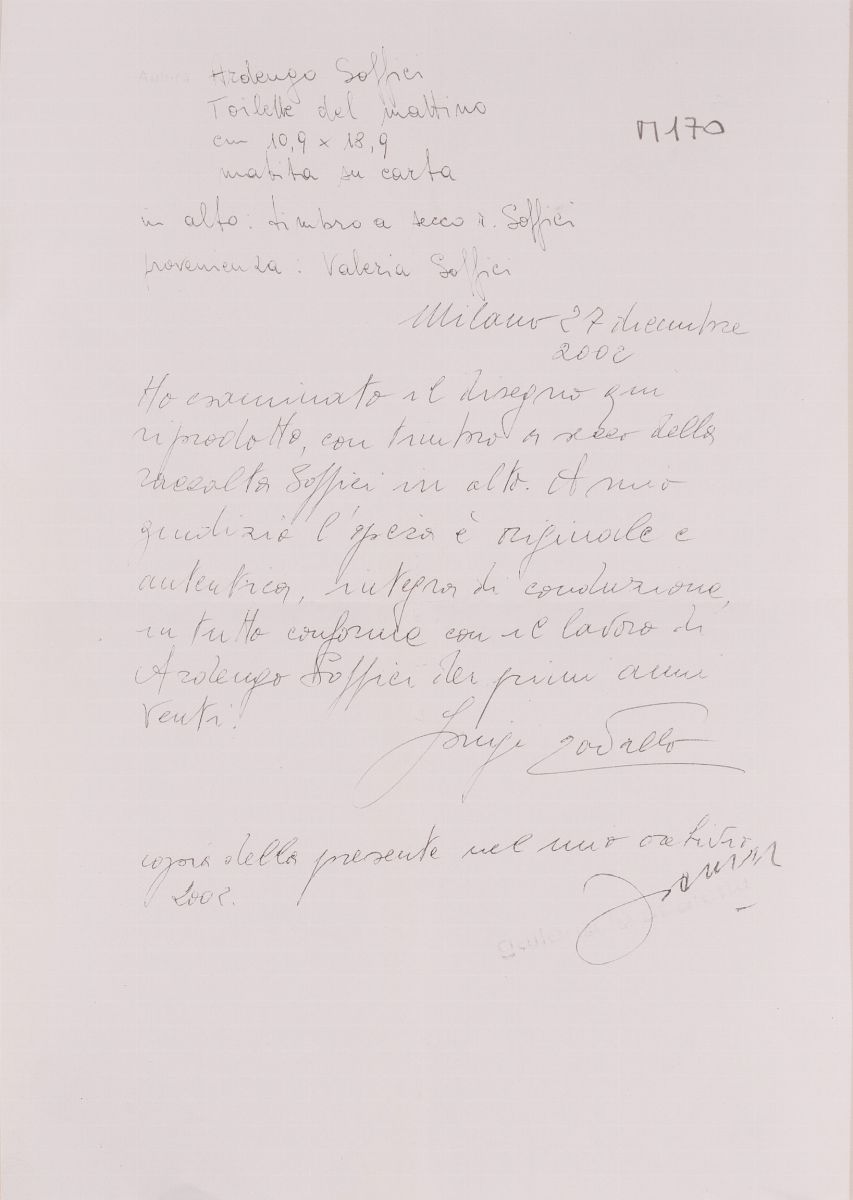 Ardengo Soffici
Toilette del mattino
cm 10,9 x 18,9
M170
matita su carta
in alto: timbro a secco r. Soffici
provenienza: Valeria Soffici
Milano 27 dicembre
2002
Ho esaminato il disegno qui
riprodotto, con timbro a secco della
raccolta Soffici in alto. A mio
giudizio l'opera è originale e
autentica, integra di conduzione,
in tutto conforme con il lavoro di
Ardengo Soffici dei primi anni
Venti.
Luigi Cavallo
copia della presente nel mio archivio
2002.